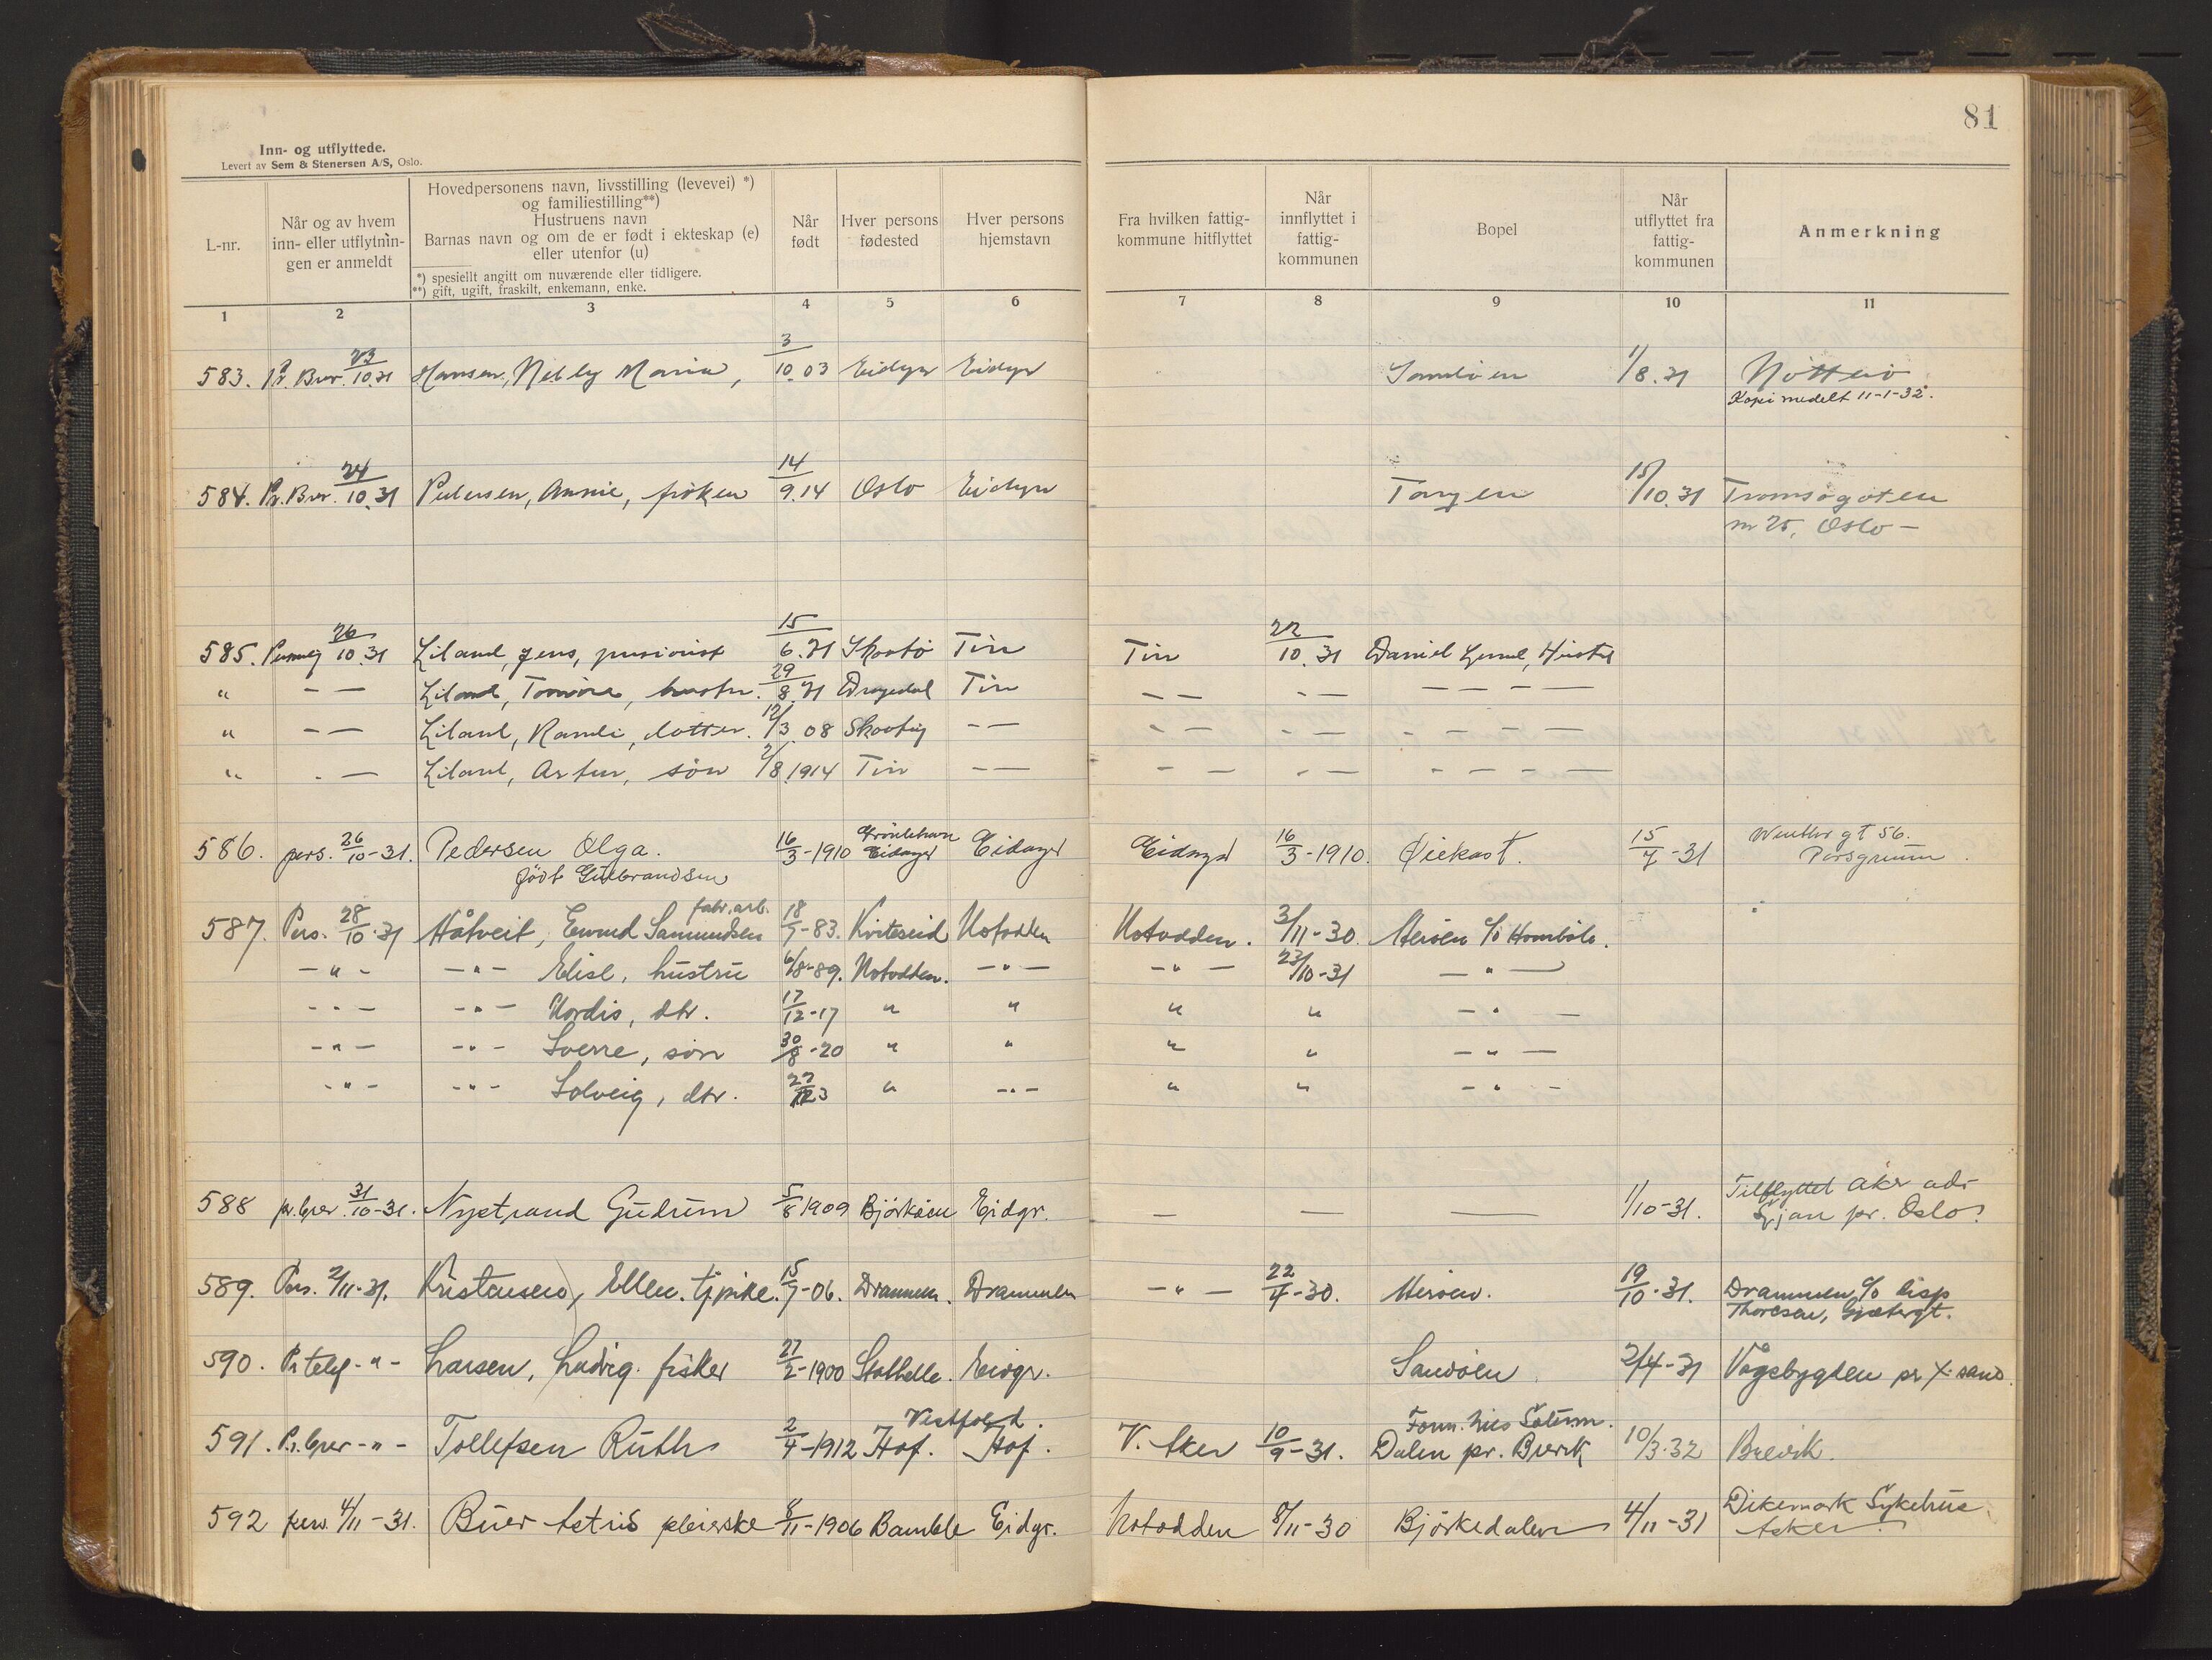 81
Inn- og utflyttede.
Levert av Sem & Stenersen A/S, Oslo.
L-nr.
Når og av hvem
inn- eller utflytnin-
gen er anmeldt
Hovedpersonens navn, livsstilling (levevei) *)
og familiestilling**)
Hustruens navn
Barnas navn og om de er født i ekteskap (e)
eller utenfor (u)
*) spesiellt angitt om nuværende eller tidligere.
**) gift, ugift, fraskilt, enkemann, enke.
Når
født
Hver persons
fødested
Hver persons
hjemstavn
Fra hvilken fattig-
kommune hitflyttet
Når
innflyttet i
fattig-
kommunen
Bopel
Når
utflyttet fra
fattig-
kommunen
Anmerkning
1 2 3 4 5 6 7 8 9 10 11
583. Pr. Brev. 23/10.31 Hansen, Nelly Marie, 3/10.03 Eidgr Eidgr 1/8.31 Nøtterø
Kopi medelt 11-1-32.
584. Pr. Brev. 24/10.31 Pedersen, Annie, frøken 14/9.14 Oslo Eidgr Tangen 15/10.31 Tromsøgaten
nr 25, Oslo –
585. 26/10.31 Liland, Jens, pensionist 15/6.71 Skåtø Tin Tin 22/10.31 Daniel
" – – Liland, hustr. 29/8.71 Drangedal Tin – – – – – – – –
" – – Liland, Randi, datter. 12/3.08 – – – – – – – – – –
" – – Liland, Artur, søn 2/8.1914 Tin – – – – – – – – – –
586. pers. 26/10-31. Pedersen Olga. 16/3-1910 Eidanger Eidanger Eidanger 16/3-1910. Øiekast. 15/7-31 Winther gt 56.
født Gulbrandsen Porsgrunn.
587. Pers. 28/10.31 Håtveit, Samundsen fabr.arb. 18/7-83. Kviteseid Notodden Notodden. 3/11-30. Herøen
– " – – " – Elise, hustru 6/8-89. Notodden. – " – – " – 23/10-31 – " –
– " – – " – Nordis, dtr. 17/12-17 " " " " – " –
– " – – " – Sverre, søn 30/8-20 " " " " – " –
– " – – " – Solveig, dtr. " – " – " " – " –
588 pr. brev. 31/10-31. Nystrand Gudrun 5/8 1909 Bjørkøen Eidgr. – – – 1/10-31. Tilflyttet Aker adr
Ljan pr. Oslo.
589. Pers. 2/11-31. Kristensen, Ellen. tj.pike. 15/7-06. Drammen. Drammen – " – 22/4-30. Herøen. 19/10-31. Drammen, c/o
Thoresen,
590. Pr telef - " - Larsen, Ludvig. fisker 27/2-1900 Stathelle. Eidgr. Sandøen 2/4-31 Vågsbygden pr. X.sand.
591. Pr. brev - " - Tollefsen Ruth 2/4-1912 Hof. Vestfold. Hof. V. Aker 10/9-31. Dalen pr. Brevik 10/3-32 Brevik.
592 pers. 4/11-31. Buer Astrid pleierske 8/11-1906 Bamble Eidgr. Notodden 8/11-30 Bjørkedalen 4/11-31 Dikemark Sykehus
Asker.